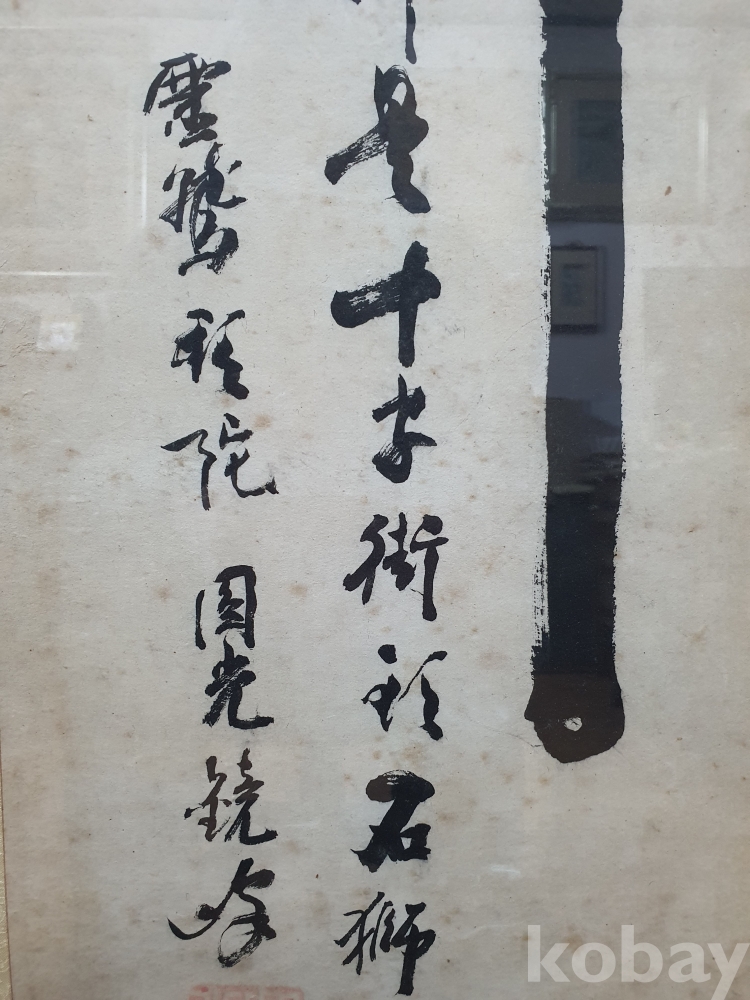 是十字街頭石獅
靈鷲頭陀 圓光鏡峰
kobay